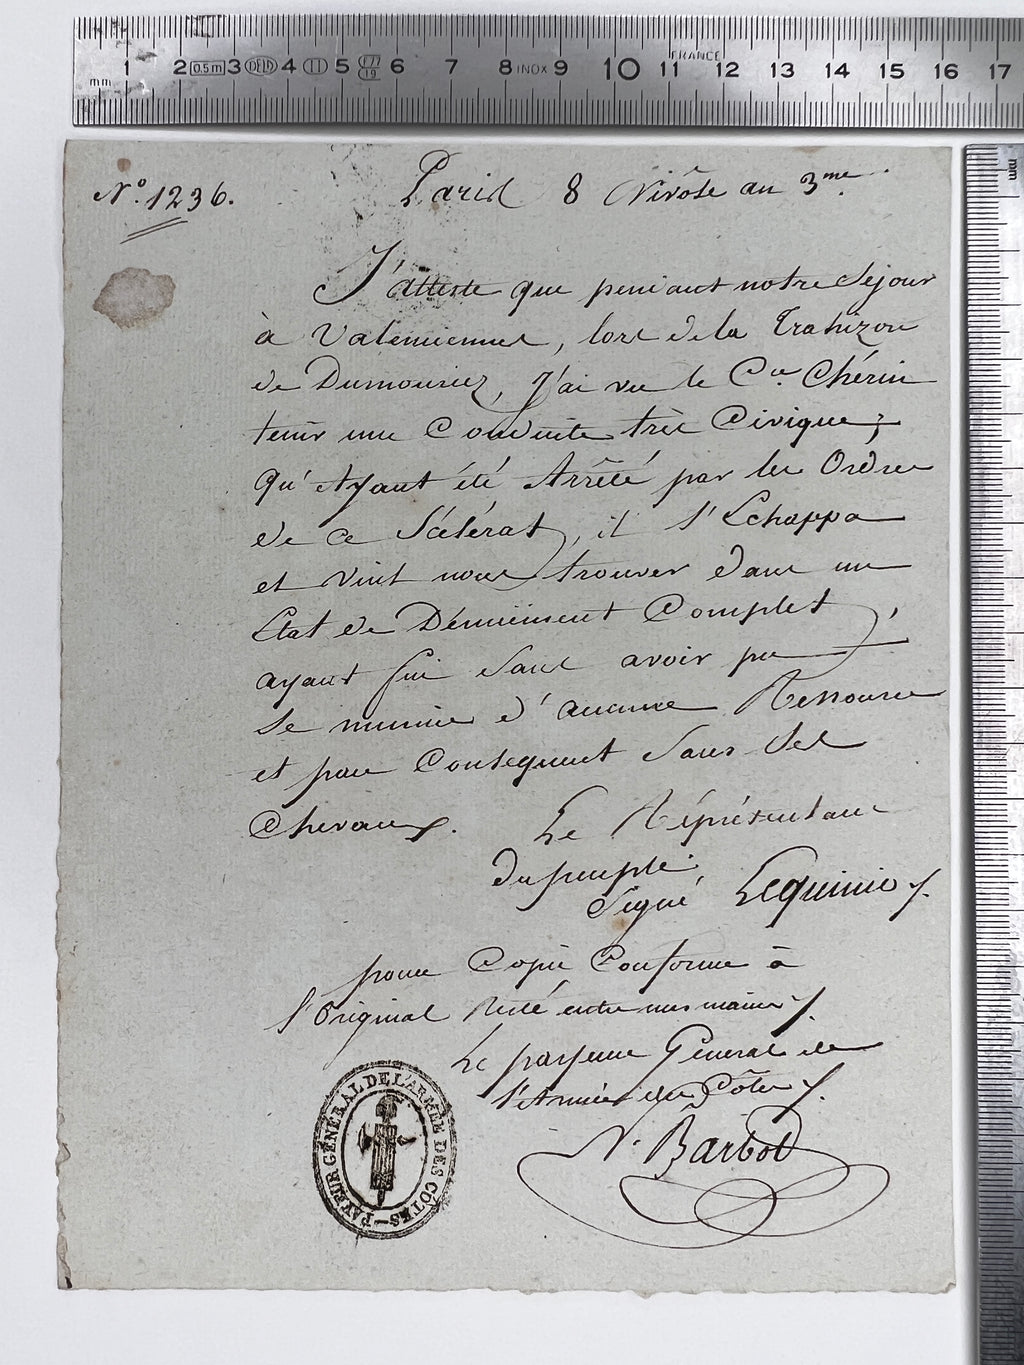 mm 1 2 0.5m 3 DELA 4 II 5 6 7 8 INOX 9 10 11 FRANCE 12 13 14 15 16 17
mm
N.° 1236.
Paris 8 Nivôse an 3me.
J'atteste que pendant notre Séjour
à Valenciennes, lors de la Trahizon
de Dumouriez, J'ai vu le Cen. Chérin
tenir une Conduite très Civique;
qu'Ayant été Arrêté par les Ordres
de ce Scélérat, il s'Echappa
et vint nous trouver dans un
Etat de Dénuëment Complet,
ayant fui sans avoir pu
se munir d'aucune Ressource
et par Conséquent Sans Ses
Chevaux.
Le Réprésentant
du peuple
Signé Lequinio
pour Copie Conforme à
l'Original Resté entre mes mains
Le payeur Général de
l'Armée des Côtes
N. Barbot
PAYEUR GÉNÉRAL DE L'ARMÉE DES CÔTES